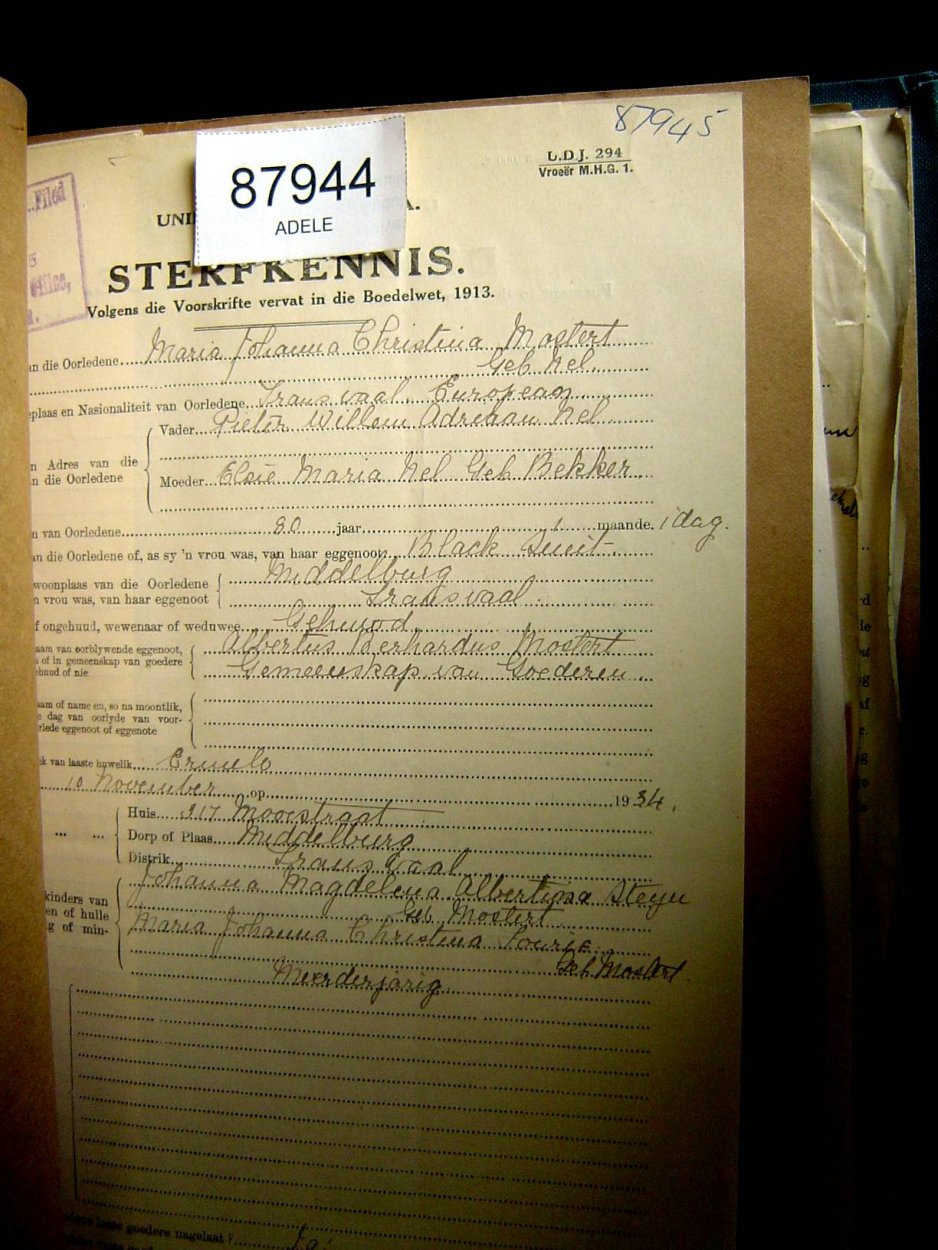 87945
U.D.J. 294
Vroeër M.H.G. 1.
87944
ADELE
Filed
5
UNI A.
STERFKENNIS.
Volgens die Voorskrifte vervat in die Boedelwet, 1913.
an die Oorledene Maria Johanna Christina Mostert
Geb. Nel.
plaas en Nasionaliteit van Oorledene Transvaal European
Vader Pieter Willem Adriaan Nel
n Adres van die
n die Oorledene
Moeder Elsie Maria Nel Geb Bekker
n van Oorledene 80 jaar 1 maande. 1 dag.
an die Oorledene of, as sy 'n vrou was, van haar eggenoot Black
woonplaas van die Oorledene Middelburg
n vrou was, van haar eggenoot Transvaal.
f ongehuud, wewenaar of weduwee Gehuod
aam van oorblywende eggenoot, Albertus Gerhardus Mostert
of in gemeenskap van goedere Gemeenskap van Goederen
ehuud of nie
aam of name en, so na moontlik,
e dag van oorlyde van voor-
rlede eggenoot of eggenote
k van laaste huwelik Ermelo
10 November op 1934.
Huis 317 Mooistraat
Dorp of Plaas Middelburg
Distrik Transvaal
Johanna Magdelena Albertina Steyn
kinders van
Geb Mostert
en of hulle
Maria Johanna Christina Fourie
g of min-
Geb. Mostert
Meerderjarig
losse goedere nagelaat? Ja